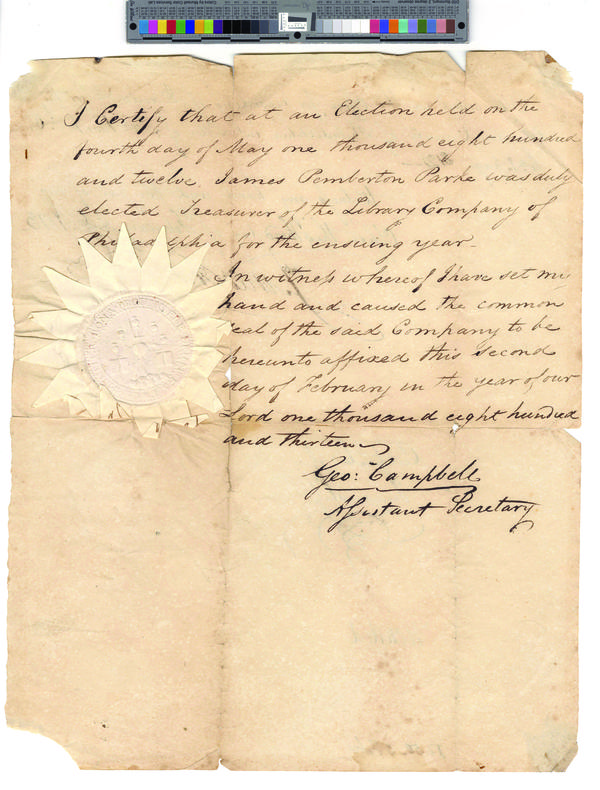 I Certify that at an Election held on the
fourth day of May one thousand eight hundred
and twelve, James Pemberton Parke was duly
elected Treasurer of the Library Company of
Philadelphia for the ensuing year.
In witness whereof I have set my
hand and caused the common
seal of the said Company to be
hereunto affixed this second
day of February in the year of our
Lord one thousand eight hundred
and thirteen
Geo: Campbell
Assistant Secretary